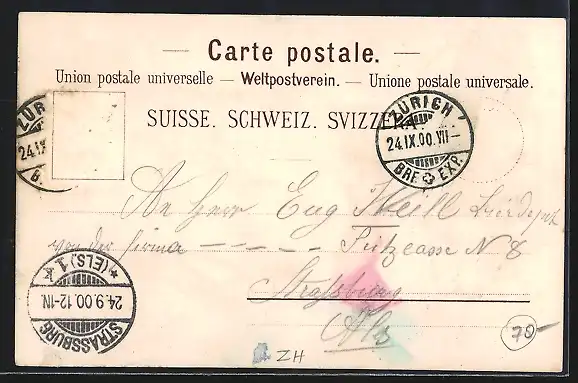 — Carte postale. —
Union postale universelle — Weltpostverein. — Unione postale universale.
SUISSE. SCHWEIZ. SVIZZERA.
ZÜRICH
24.IX.00.VII—
BRF. EXP.
ZÜR
24.IX
B.
An Herr Eug
von der Firma — — — — N 8
Strassburg
Els
STRASSBURG
24.9.00.12-1N.
* (ELS.) 1 k
78-
ZH